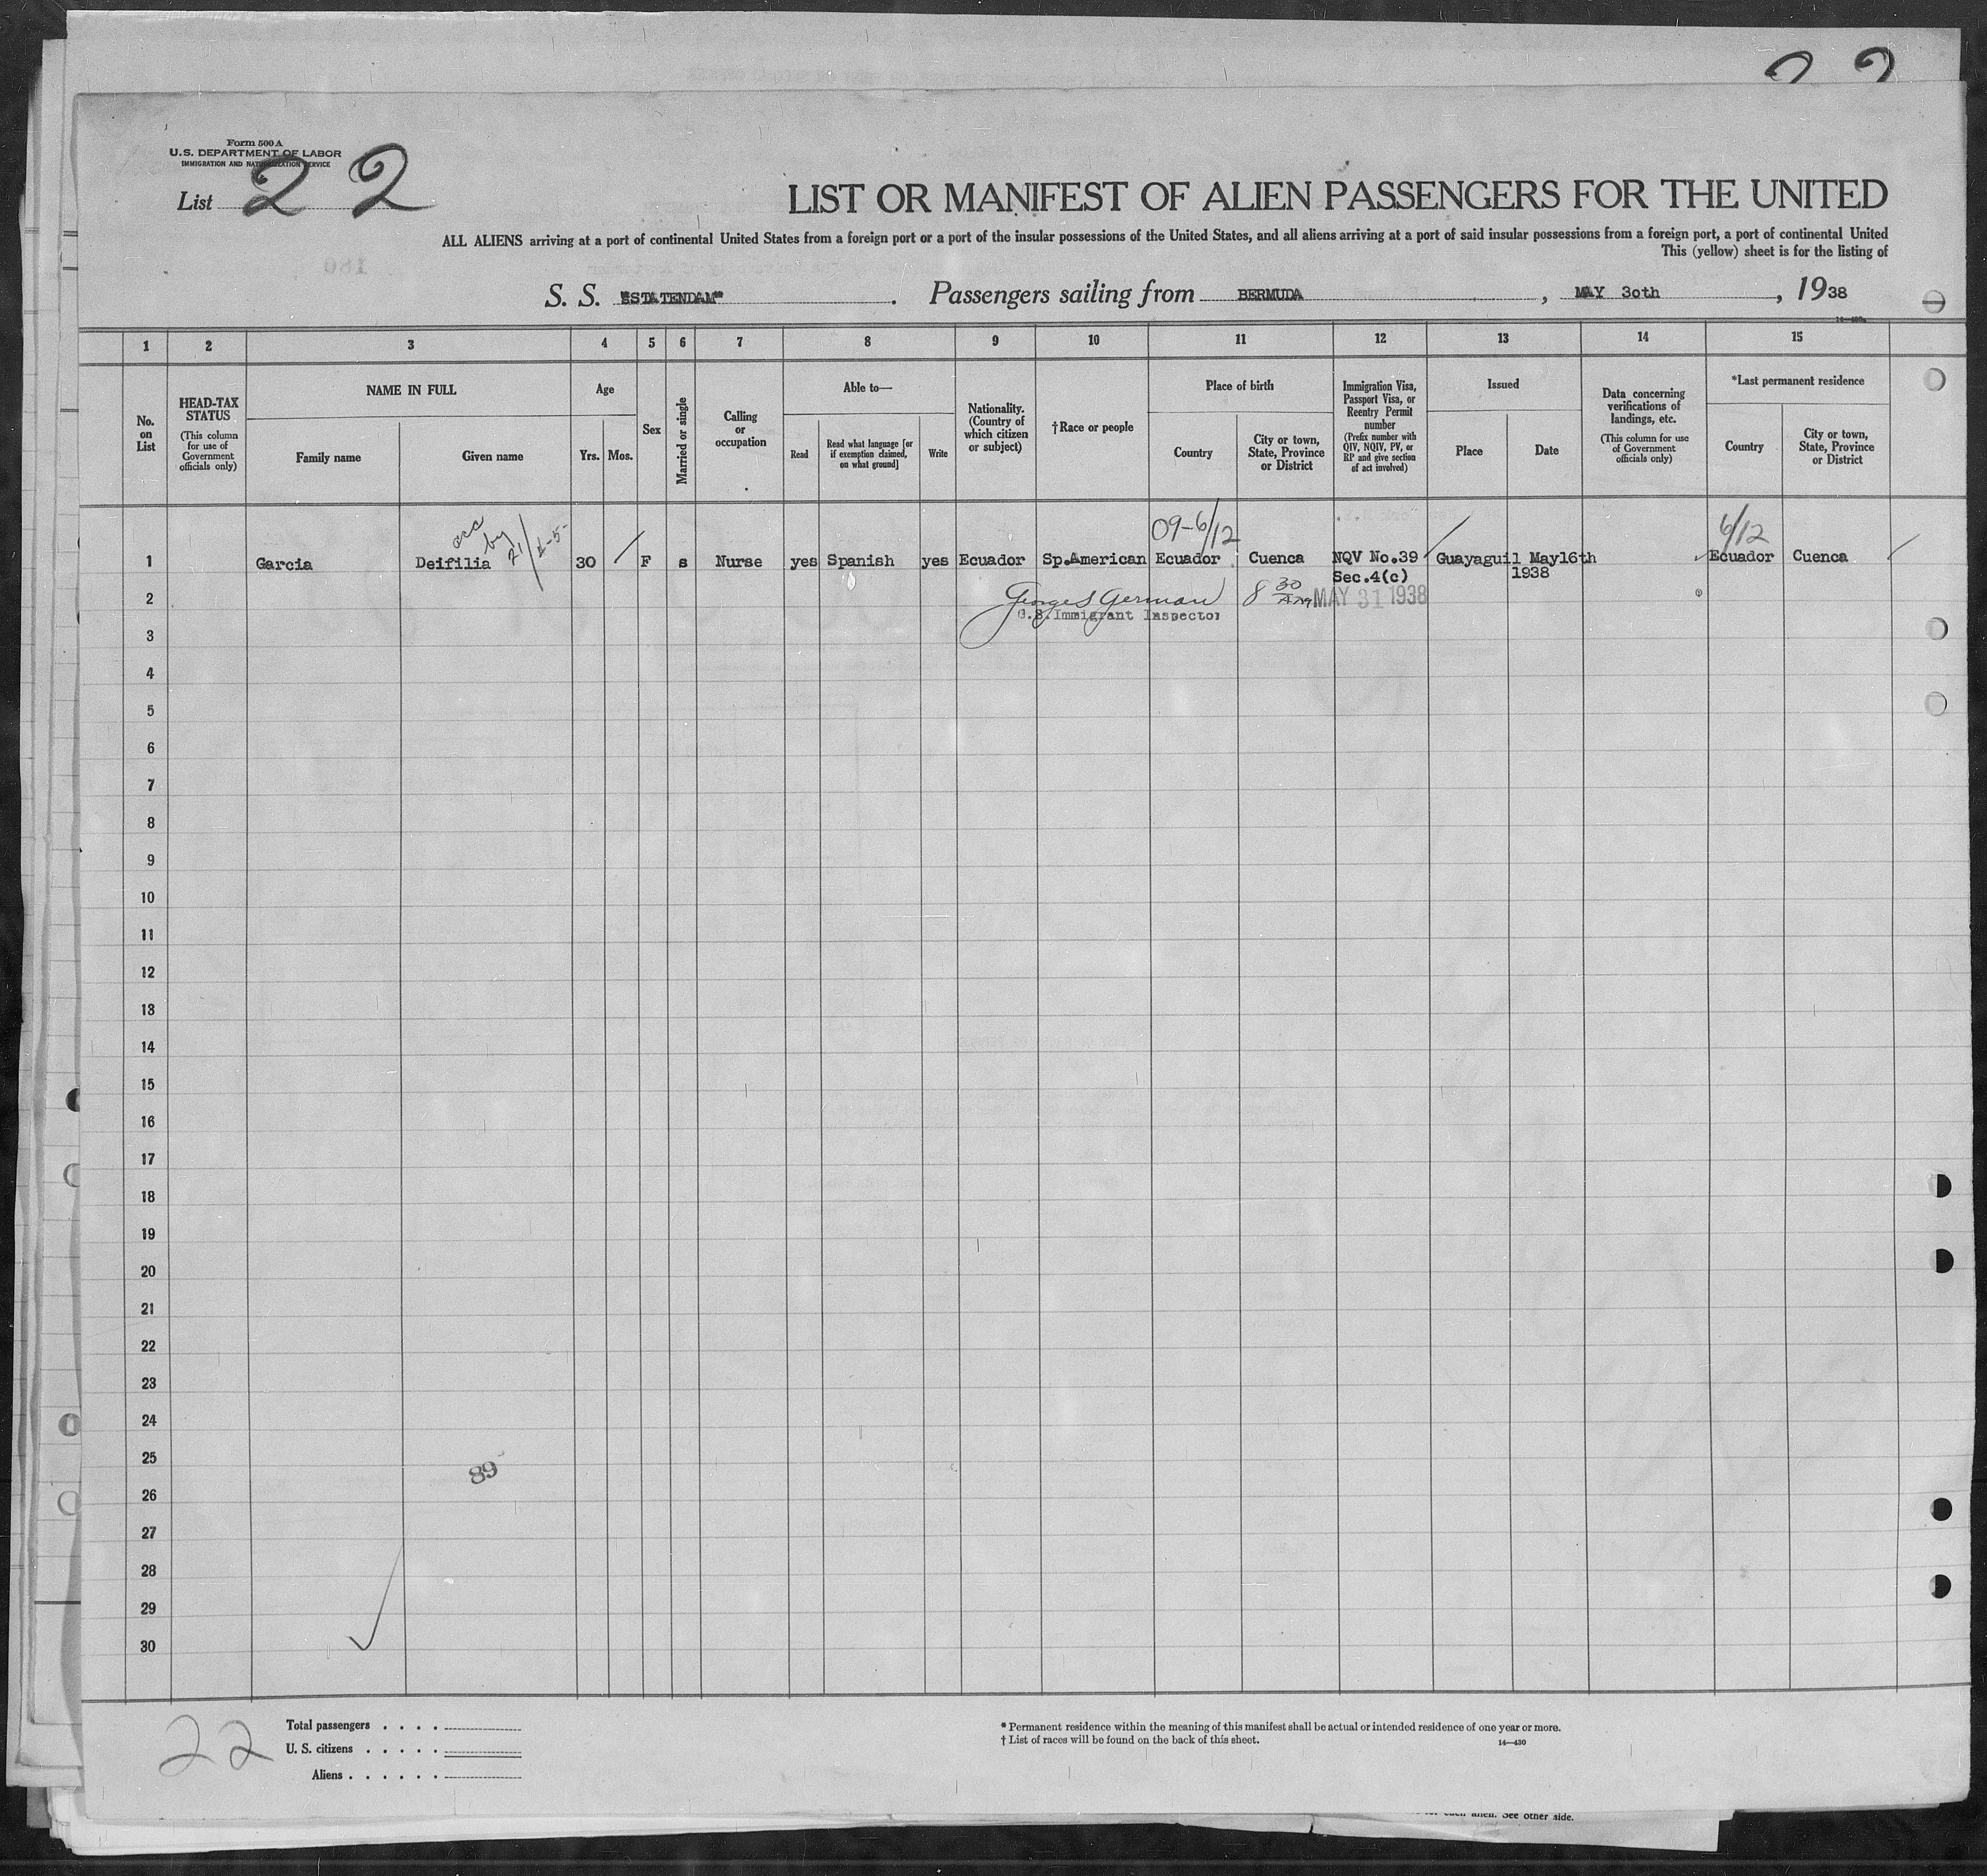 Form 500 A
U.S. DEPARTMENT OF LABOR
IMMIGRATION AND NATURALIZATION SERVICE
List 22
LIST OR MANIFEST OF ALIEN PASSENGERS FOR THE UNITED
ALL ALIENS arriving at a port of continental United States from a foreign port or a port of the insular possessions of the United States, and all aliens arriving at a port of said insular possessions from a foreign port, a port of continental United
This (yellow) sheet is for the listing of
S. S. "STATENDAM" . Passengers sailing from BERMUDA , MAY 30th , 1938
1 2 3 4 5 6 7 8 9 10 11 12 13 14 15
No. on List
HEAD-TAX STATUS
(This column for use of Government officials only)
NAME IN FULL
Family name
Given name
Age
Yrs. Mos.
Sex
Married or single
Calling or occupation
Able to—
Read
Read what language [or if exemption claimed, on what ground]
Write
Nationality. (Country of which citizen or subject)
†Race or people
Place of birth
Country
City or town, State, Province or District
Immigration Visa, Passport Visa, or Reentry Permit number
(Prefix number with QIV, NQIV, PV, or RP and give section of act involved)
Issued
Place
Date
Data concerning verifications of landings, etc.
(This column for use of Government officials only)
*Last permanent residence
Country
City or town, State, Province or District
acc by 21/4-5-
09-6/12
6/12
1 Garcia Deifilia 30 F s Nurse yes Spanish yes Ecuador Sp.American Ecuador Cuenca NQV No.39 Guayaguil May16th Ecuador Cuenca
Sec.4(c) 1938
2 George S German 8 30 AM MAY 31 1938
U.S. Immigrant Inspector
3
4
5
6
7
8
9
10
11
12
13
14
15
16
17
18
19
20
21
22
23
24
25
89
26
27
28
29
30
22
Total passengers . . . .
U. S. citizens . . . . .
Aliens . . . . . .
* Permanent residence within the meaning of this manifest shall be actual or intended residence of one year or more.
† List of races will be found on the back of this sheet.
14—430
See other side.